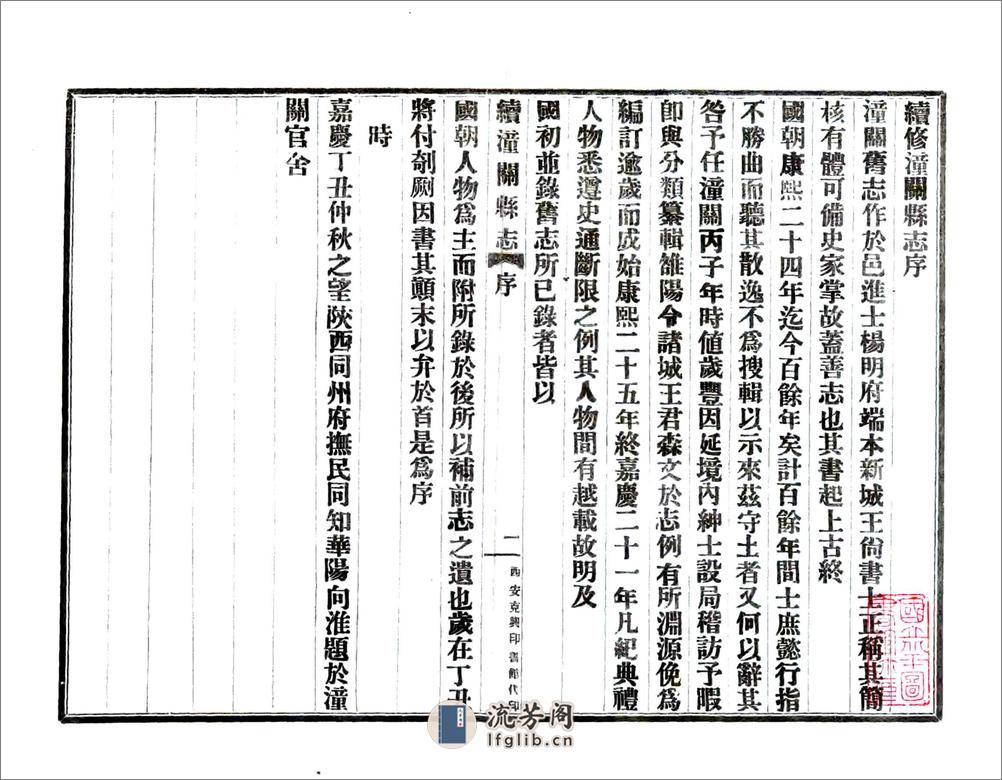 續修潼關縣志序
潼關舊志作於邑進士楊明府端本新城王尙書士正稱其簡
核有體可備史家掌故蓋善志也其書起上古終
國朝康熙二十四年迄今百餘年矣計百餘年間士庶懿行指
不勝曲而聽其散逸不爲搜輯以示來茲守土者又何以辭其
咎予任潼關丙子年時値歲豐因延境內紳士設局稽訪予暇
卽與分類纂輯雒陽令諸城王君森文於志例有所淵源俛爲
編訂逾歲而成始康熙二十五年終嘉慶二十一年凡紀典禮
人物悉遵史通斷限之例其人物間有越載故明及
國初並錄舊志所已錄者皆以
續潼關縣志 序 二 西安克興印書館代印
國朝人物爲主而附所錄於後所以補前志之遺也歲在丁丑
將付剞劂因書其顛末以弁於首是爲序
時
嘉慶丁丑仲秋之望陝西同州府撫民同知華陽向淮題於潼
關官舍
流芳阁
lfglib.cn